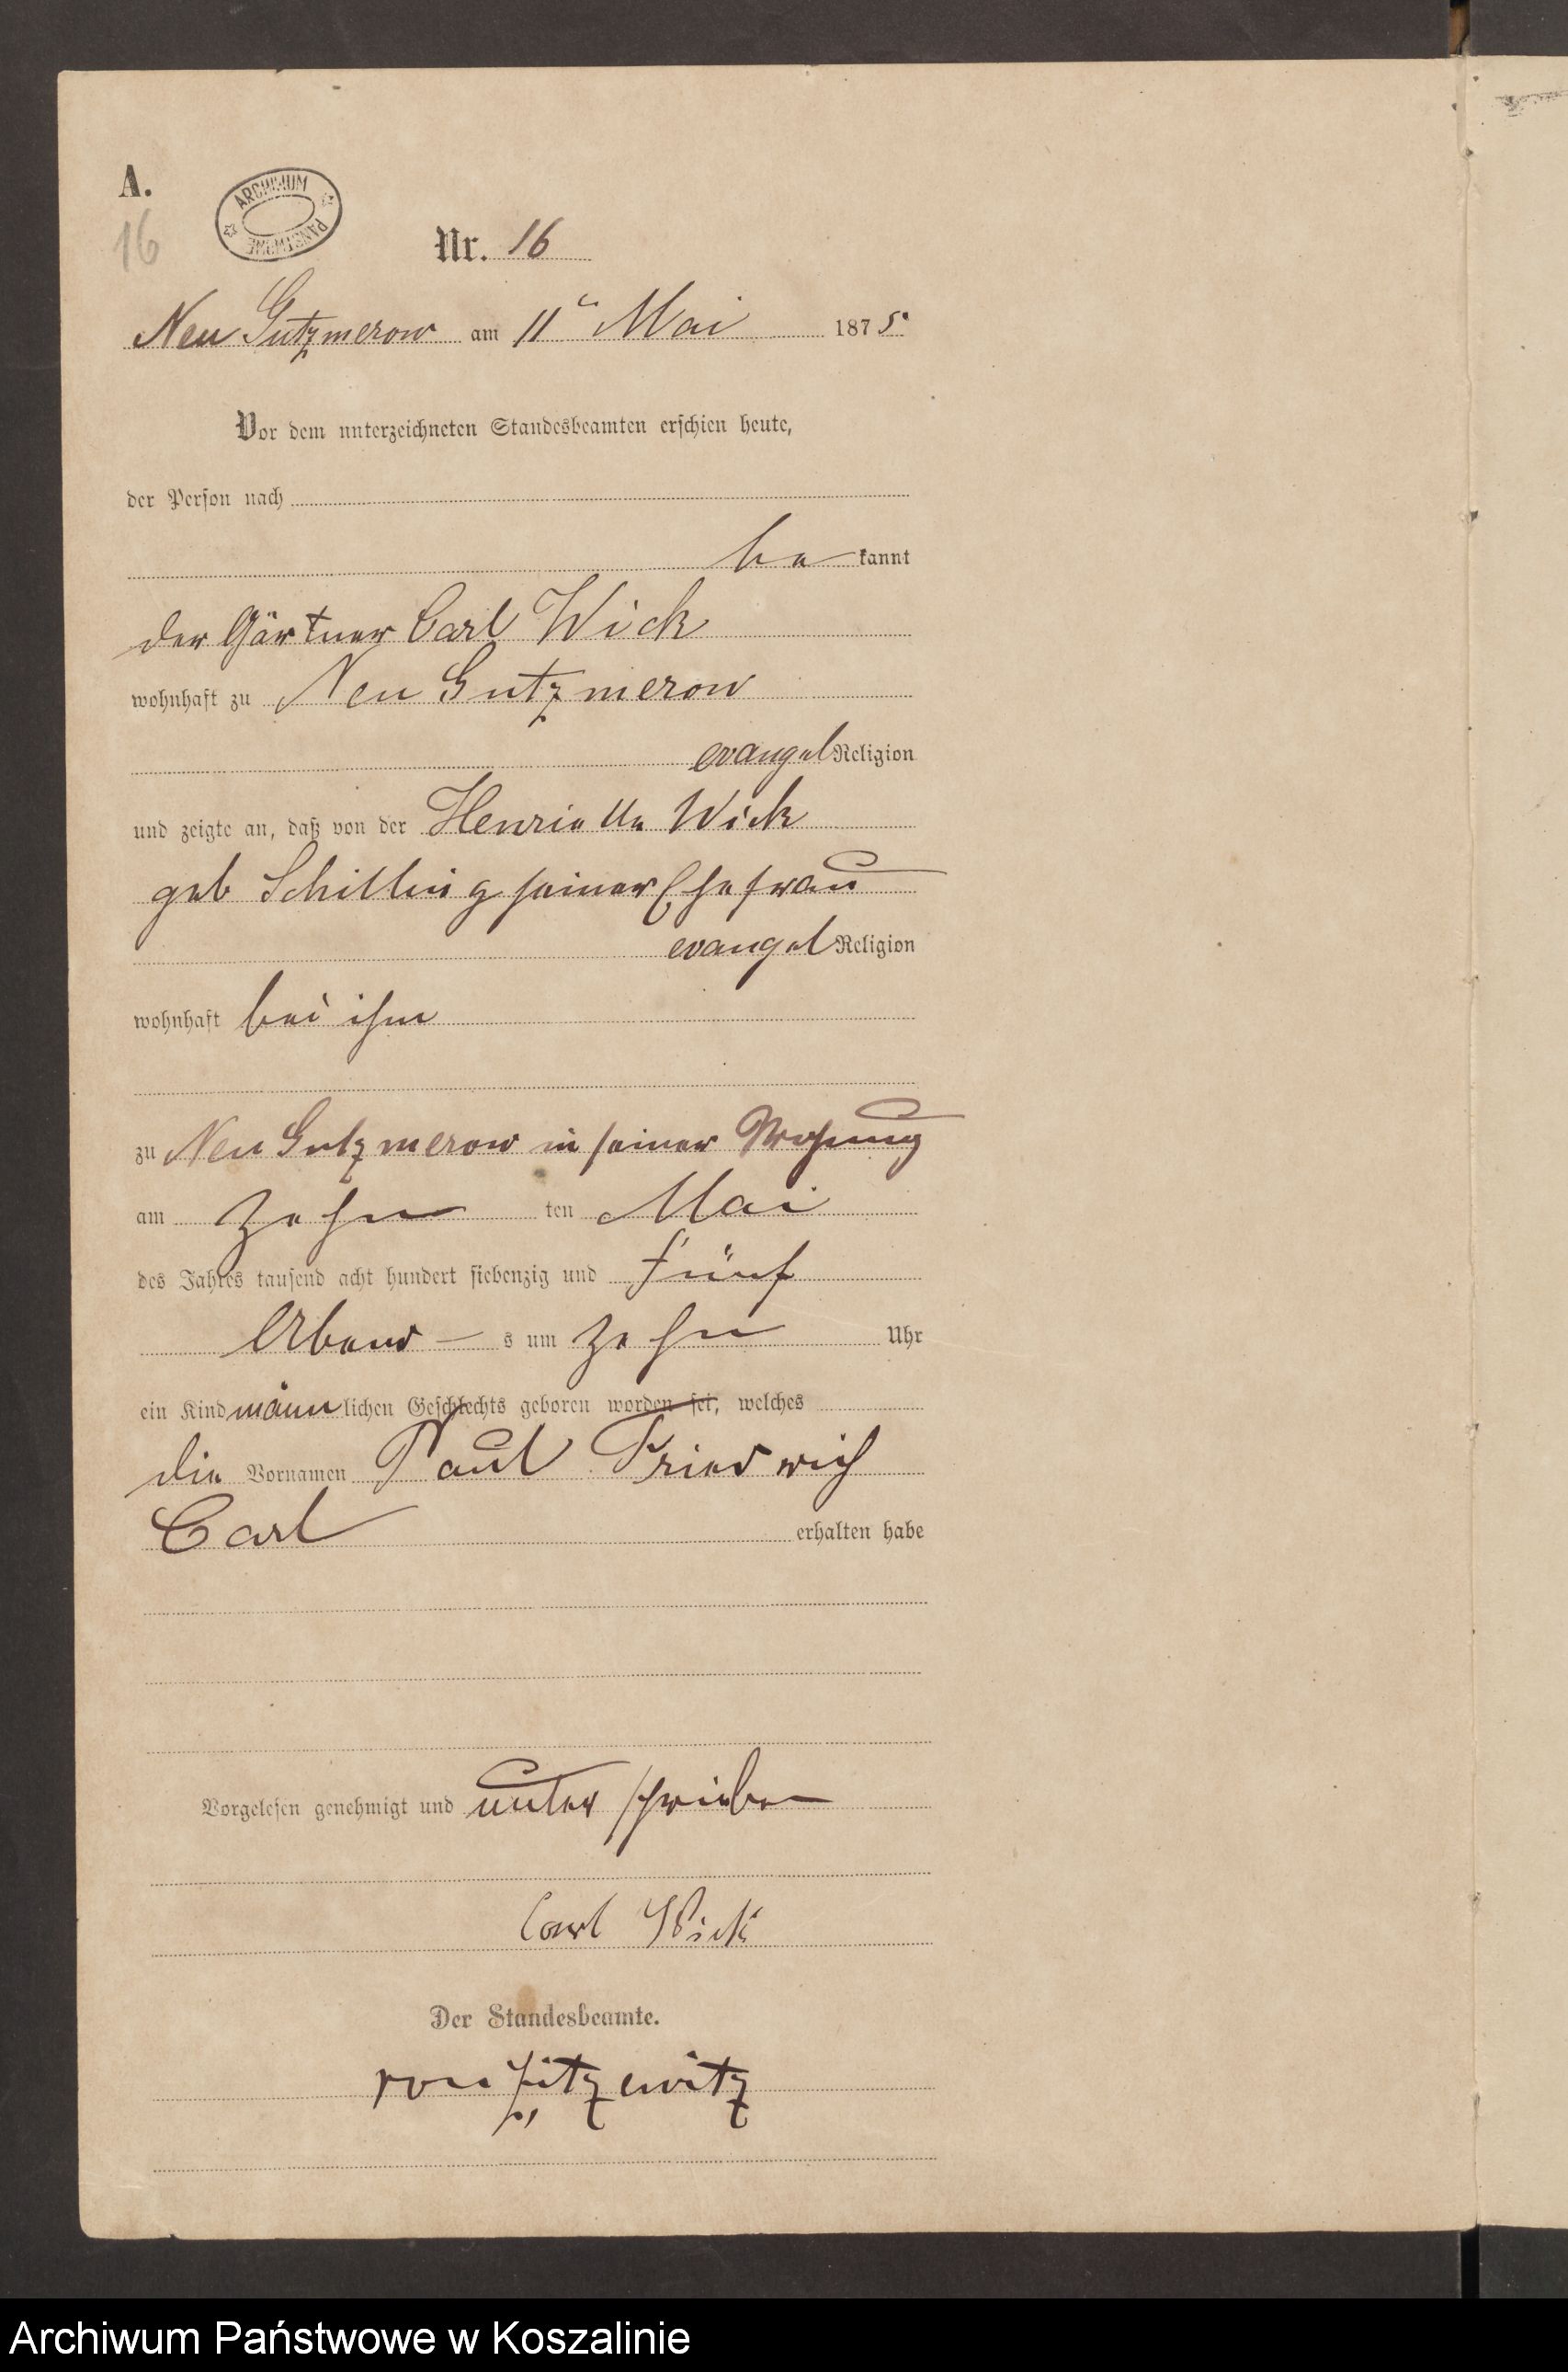 A.
16
ARCHIWUM PAŃSTWOWE
Nr. 16
Neu Gutzmerow am 11ten Mai 1875.
Vor dem unterzeichneten Standesbeamten erschien heute,
der Person nach
bekannt
der Gärtner Carl Wick
wohnhaft zu Neu Gutzmerow
evangel Religion
und zeigte an, daß von der Henriette Wick
geb Schilling seiner Ehefrau
evangel Religion
wohnhaft bei ihm
zu Neu Gutzmerow in seiner Wohnung
am zehn ten Mai
des Jahres tausend acht hundert siebenzig und fünf
Abend - s um zehn Uhr
ein Kind männlichen Geschlechts geboren worden sei, welches
die Vornamen Paul Friedrich
Carl erhalten habe
Vorgelesen genehmigt und unterschrieben
Carl Wick
Der Standesbeamte.
von Zitzewitz
Archiwum Państwowe w Koszalinie